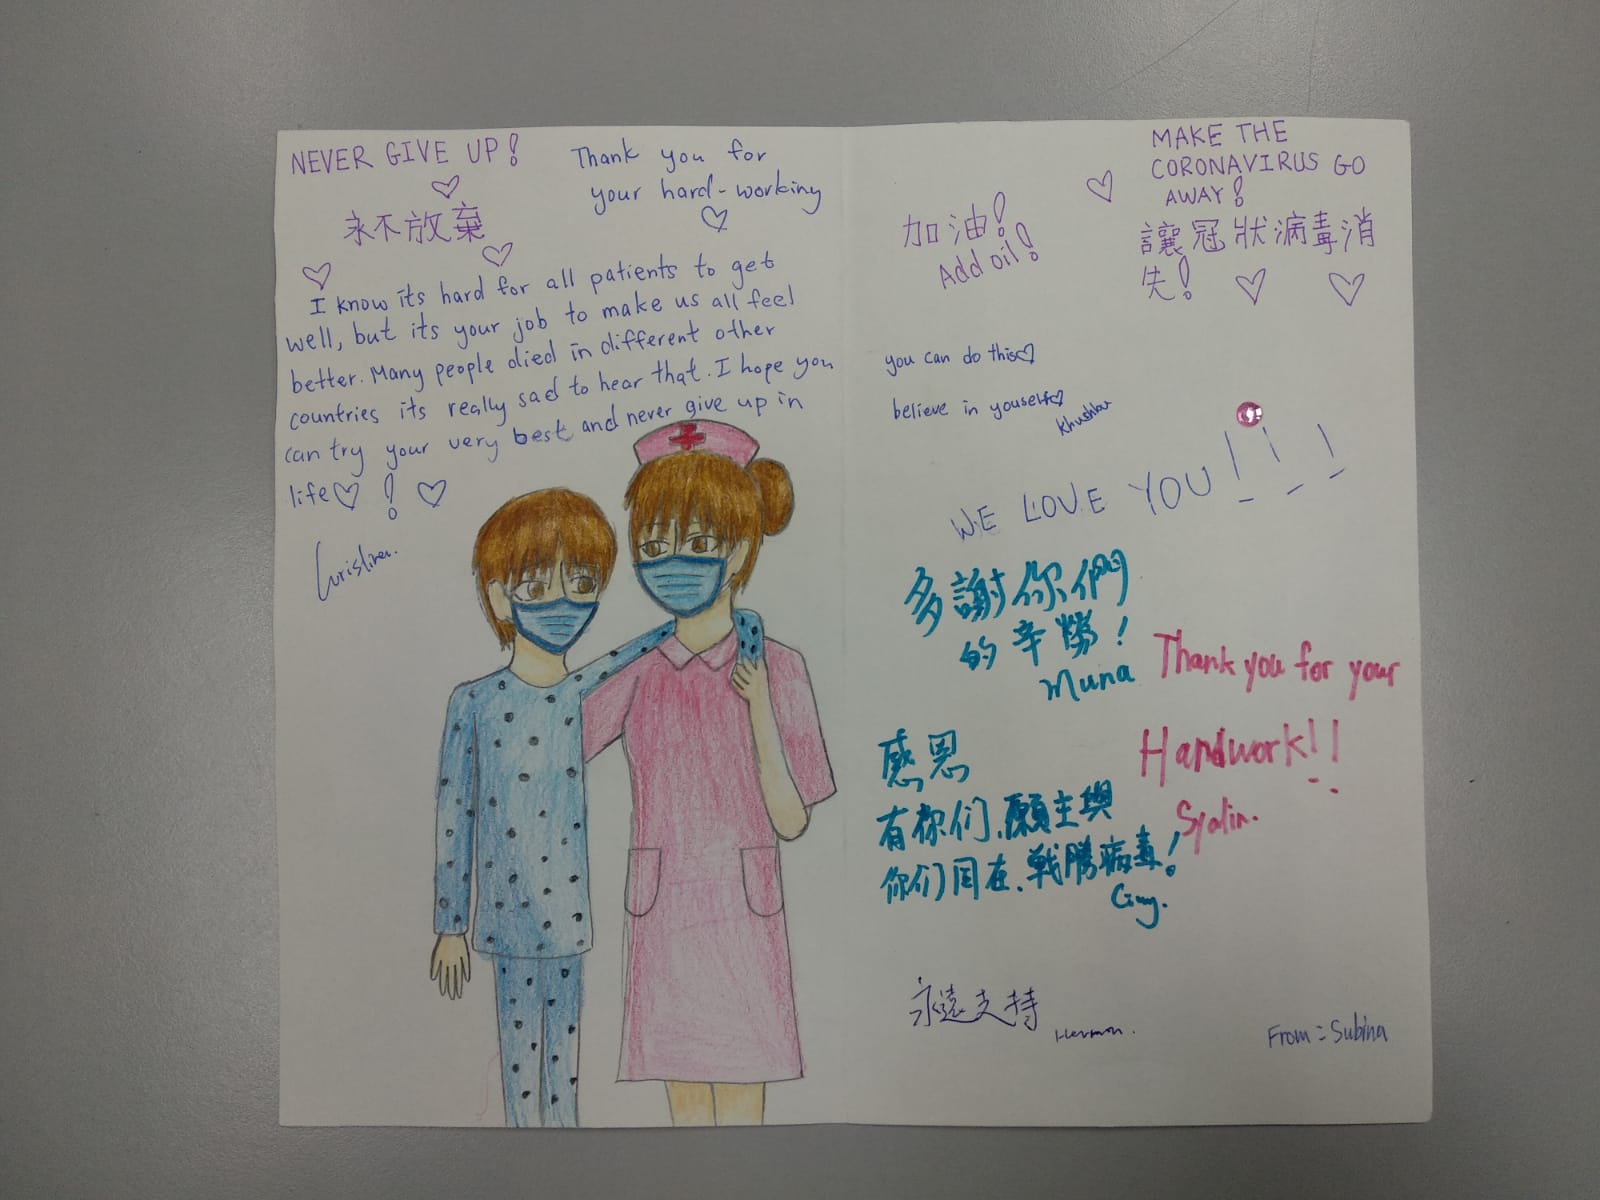 NEVER GIVE UP!
永不放棄
Thank you for
your hard-working
I know its hard for all patients to get
well, but its your job to make us all feel
better. Many people died in different other
countries its really sad to hear that. I hope you
can try your very best and never give up in
life !
加油!
Add oil!
MAKE THE
CORONAVIRUS GO
AWAY!
讓冠狀病毒消
失!
you can do this
believe in youself
Khushbu
WE LOVE YOU!!!
多謝你們
的辛勞!
Muna
Thank you for your
Hardwork!!
Syalin.
感恩
有你们,願主與
你们同在,戰勝病毒!
永遠支持
Hermon.
From = Subina